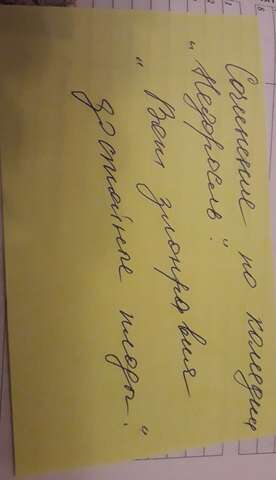 Сочинение по комедии
"Недоросль".
"Вот злонравия
достойные плоды."